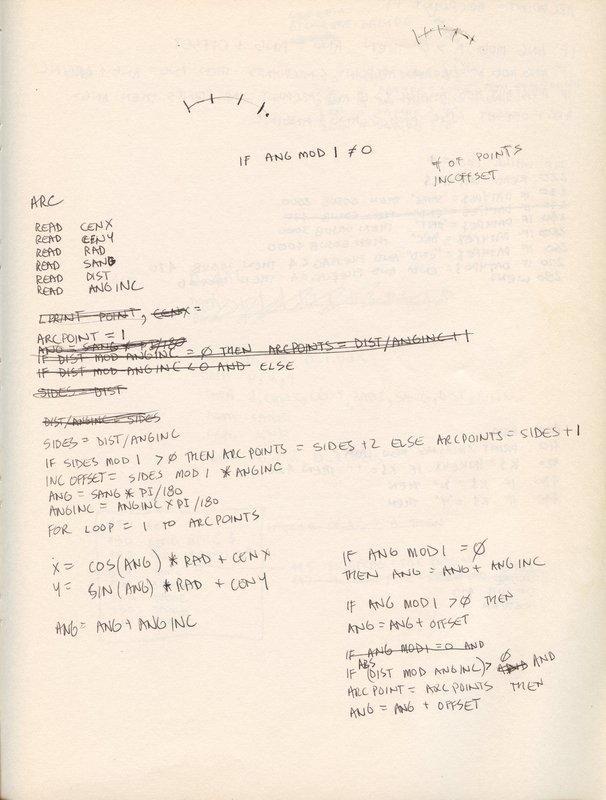 IF ANG MOD 1 ≠ 0
# OF POINTS
INCOFFSET
ARC
READ CENX
READ CENY
READ RAD
READ SANG
READ DIST
READ ANGINC
LPRINT POINT, CENX =
ARCPOINT = 1
ANG = SANG * PI/180
IF DIST MOD ANGINC = Ø THEN ARCPOINTS = DIST/ANGINC+1
IF DIST MOD ANGINC < 0 AND ELSE
SIDES = DIST
DIST/ANGINC = SIDES
SIDES = DIST/ANGINC
IF SIDES MOD 1 > Ø THEN ARCPOINTS = SIDES +2 ELSE ARCPOINTS = SIDES +1
INC OFFSET = SIDES MOD 1 * ANGINC
ANG = SANG * PI/180
ANGINC = ANGINC X PI/180
FOR LOOP = 1 TO ARCPOINTS
X = COS(ANG) * RAD + CENX
Y = SIN(ANG) * RAD + CENY
ANG = ANG + ANGINC
IF ANG MOD 1 = Ø
THEN ANG = ANG + ANGINC
IF ANG MOD 1 > Ø THEN
ANG = ANG + OFFSET
IF ANG MOD 1 = 0 AND
IF ABS (DIST MOD ANGINC) > Ø AND
ARCPOINT = ARCPOINTS THEN
ANG = ANG + OFFSET